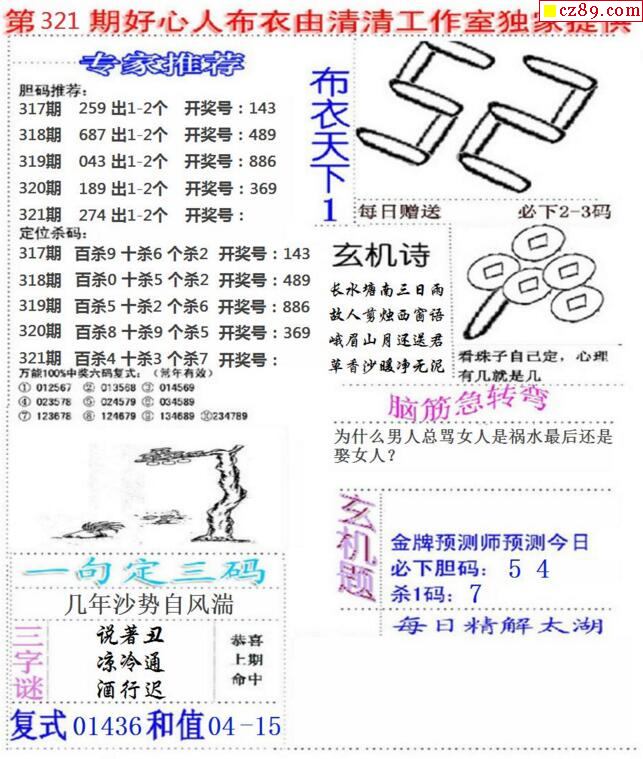 第321期好心人布衣由清清工作室独家提供
cz89.com
专家推荐
胆码推荐：
317期 259 出1-2个 开奖号：143
318期 687 出1-2个 开奖号：489
319期 043 出1-2个 开奖号：886
320期 189 出1-2个 开奖号：369
321期 274 出1-2个 开奖号：
定位杀码：
317期 百杀9 十杀6 个杀2 开奖号：143
318期 百杀0 十杀5 个杀2 开奖号：489
319期 百杀5 十杀2 个杀6 开奖号：886
320期 百杀8 十杀9 个杀5 开奖号：369
321期 百杀4 十杀3 个杀7 开奖号：
万能100%中奖六码复式：（常年有效）
① 012567 ② 013568 ③ 014569
④ 023578 ⑤ 024579 ⑥ 034589
⑦ 123678 ⑧ 124679 ⑨ 134689 ⑩234789
一句定三码
几年沙势自风湍
三字谜
说著丑
凉冷通
酒行迟
恭喜
上期
命中
复式01436和值04-15
布衣天下1
52
每日赠送 必下2-3码
玄机诗
长水塘南三日雨
故人剪烛西窗语
峨眉山月还送君
草香沙暖净无泥
看珠子自己定，心理
有几就是几
脑筋急转弯
为什么男人总骂女人是祸水最后还是
娶女人？
玄机题
金牌预测师预测今日
必下胆码：5 4
杀1码：7
每日精解太湖